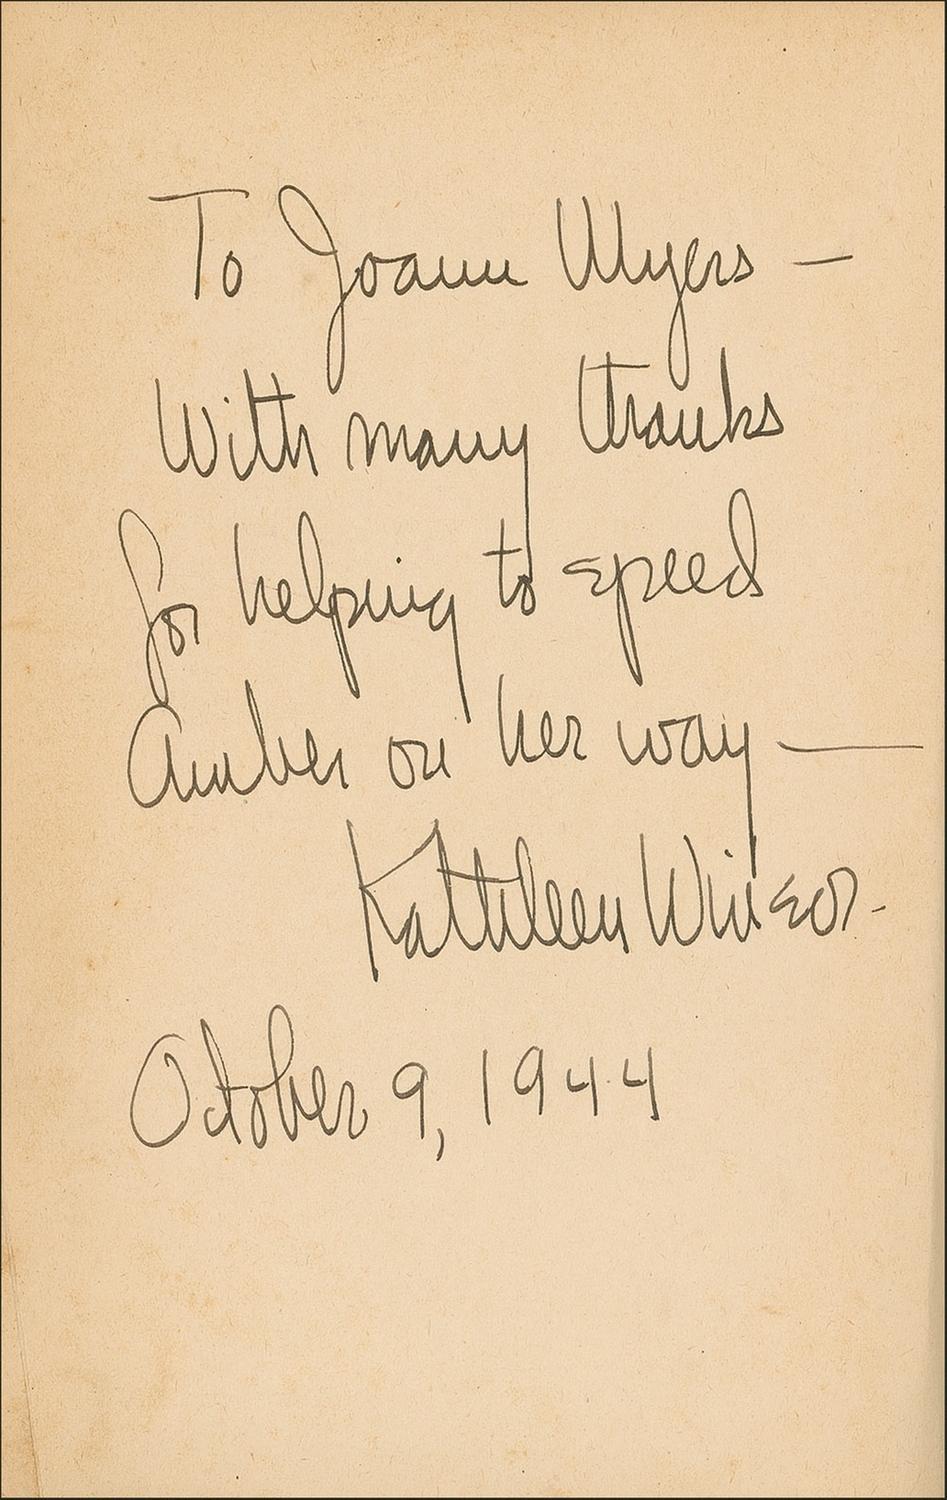 To Joann Myers —
With many thanks
for helping to speed
Amber on her way —
Kathleen Winsor.
October 9, 1944